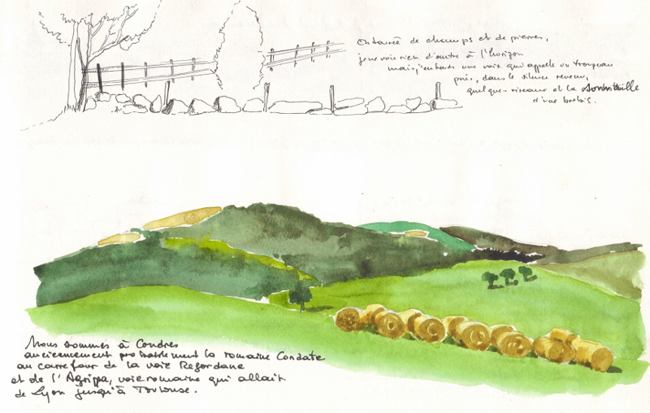 Entourée de champs et de pierres,
je ne vois rien d'autre à l'horizon
mais j'entends une voix qui appelle un troupeau
puis, dans le silence revenu,
quelques oiseaux et la sonnaille
d'une brebis.
Nous sommes à Condres
anciennement probablement la romaine Condate
au carrefour de la voie Regordane
et de l'Agrippa, voie romaine qui allait
de Lyon jusqu'à Toulouse.